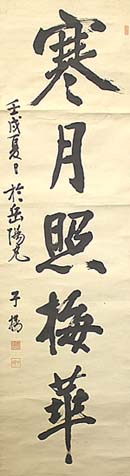 寒月照梅華
壬戌夏日於岳陽
子揚